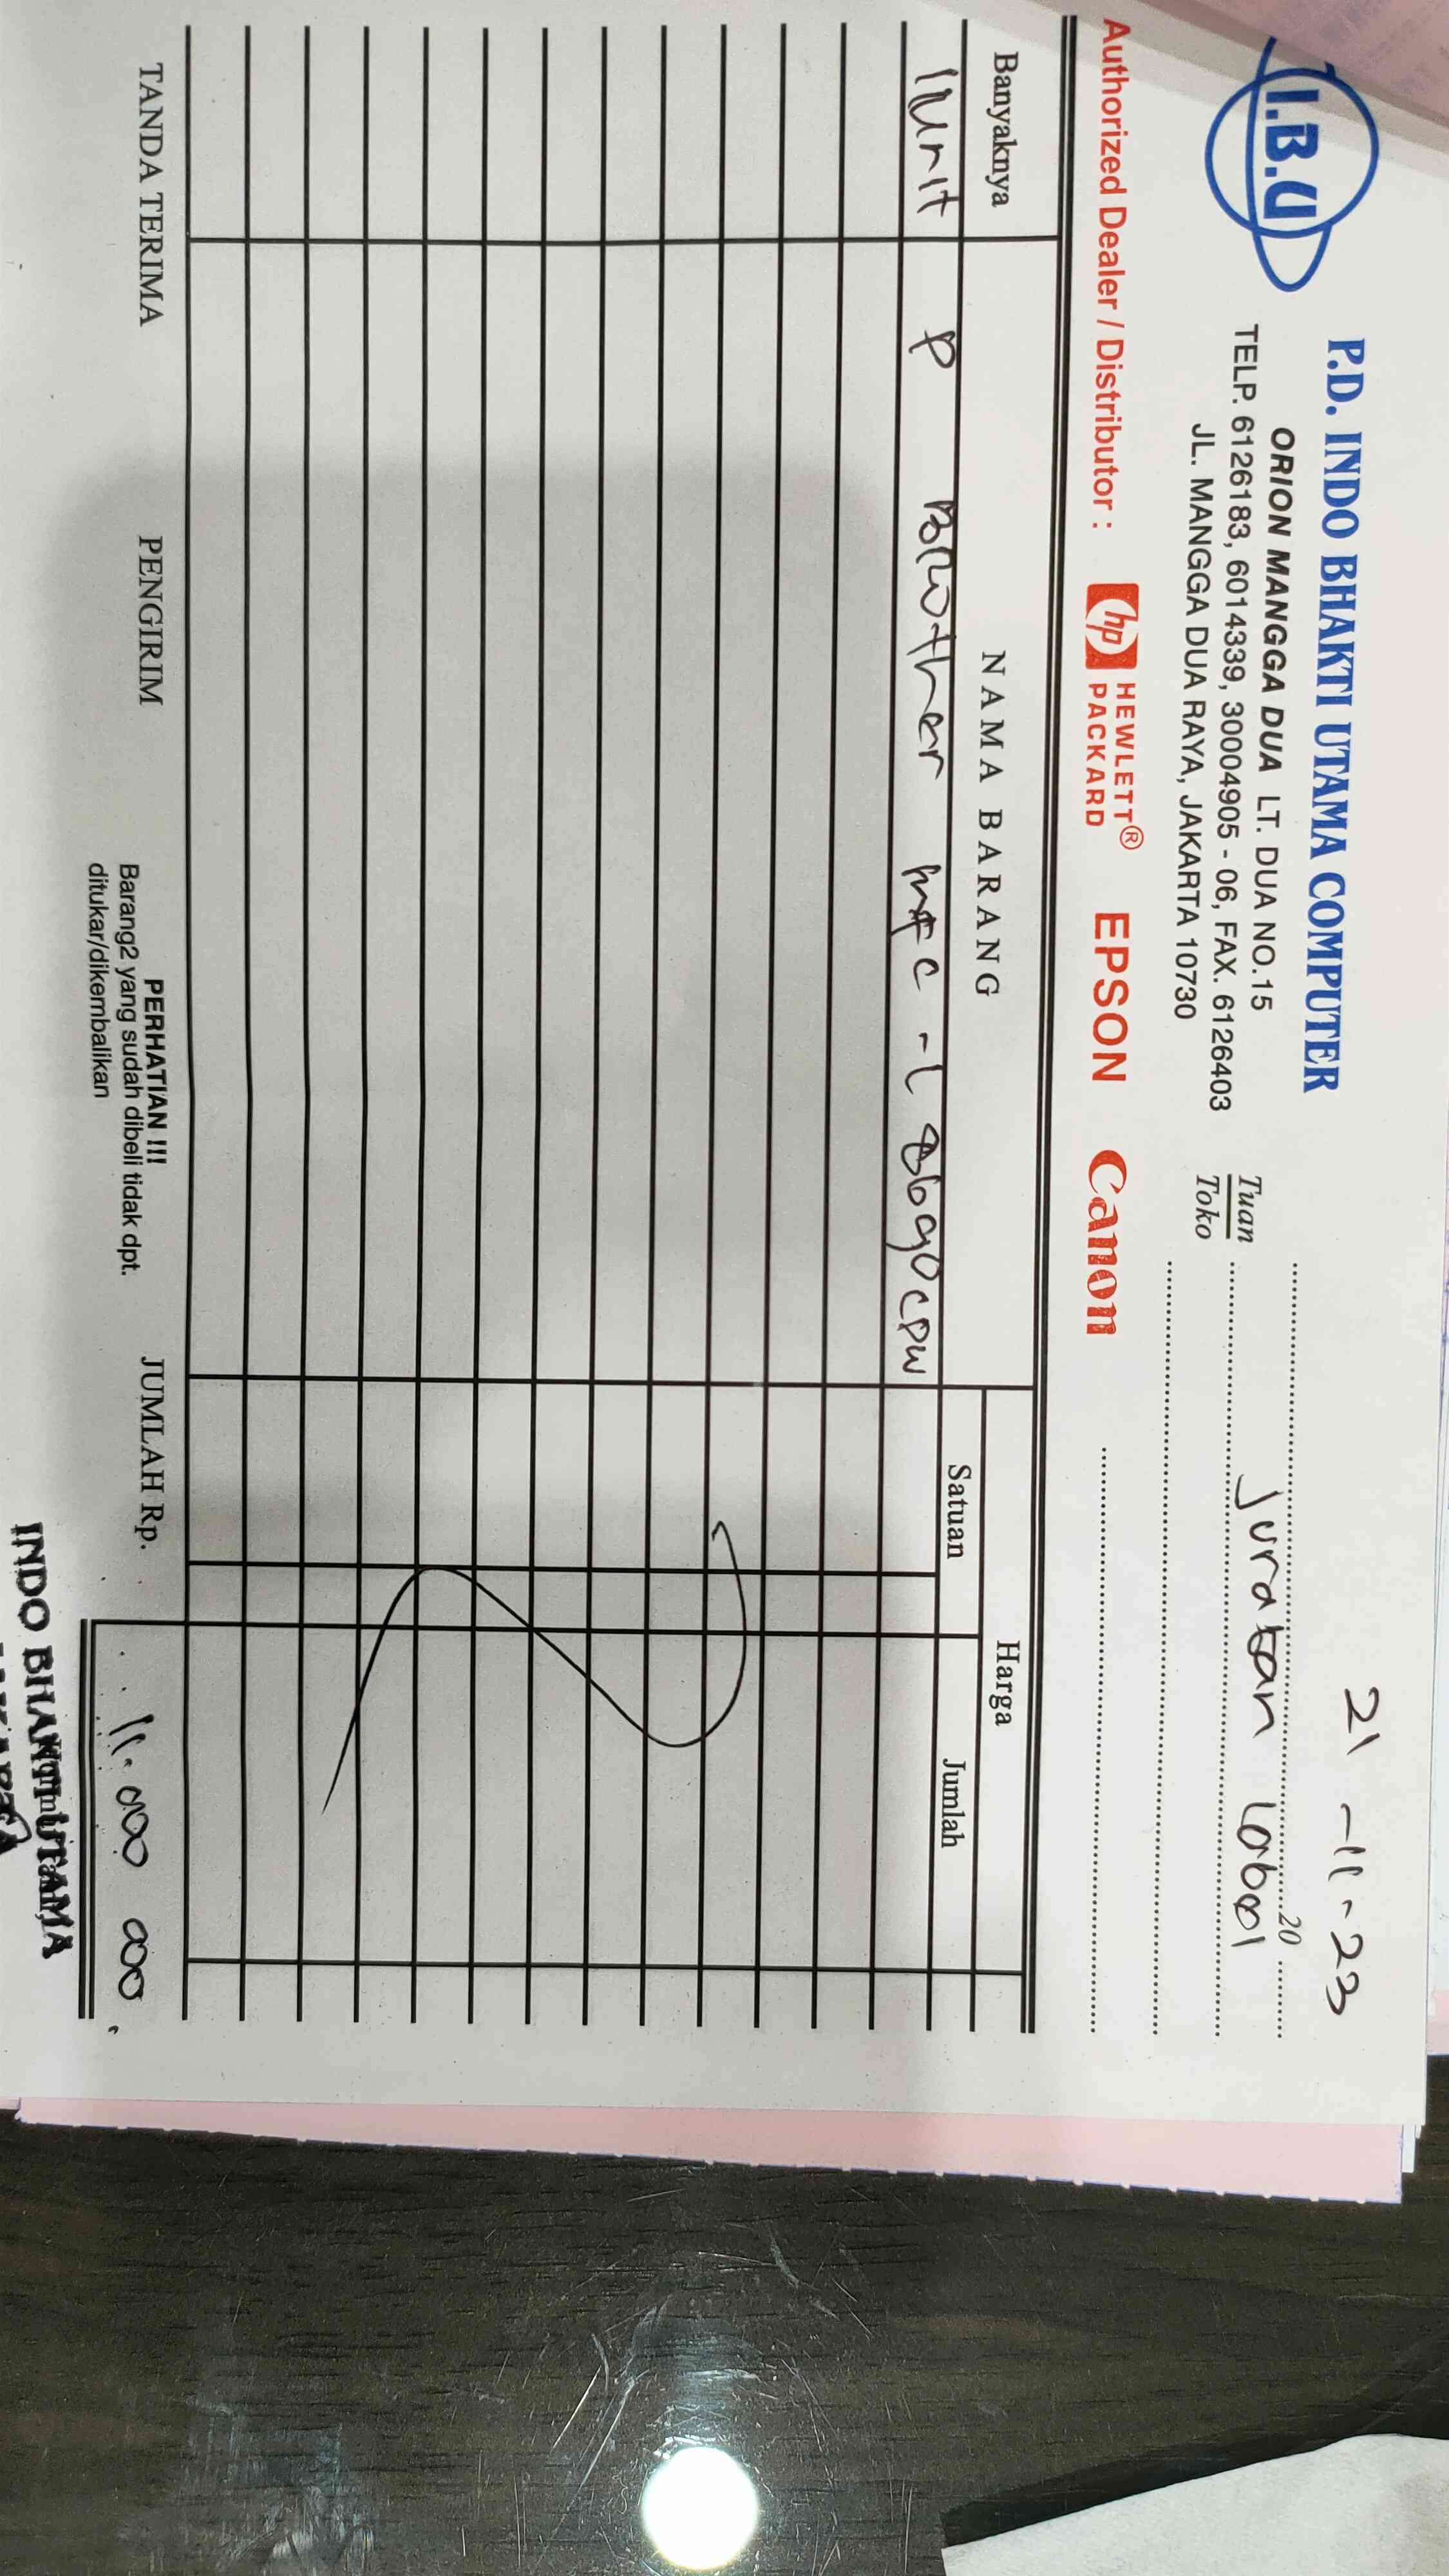 I.B.U
P.D. INDO BHAKTI UTAMA COMPUTER
ORION MANGGA DUA LT. DUA NO.15
TELP. 6126183, 6014339, 30004905 - 06, FAX. 6126403
JL. MANGGA DUA RAYA, JAKARTA 10730
21 - 11 - 23
20
Tuan
Toko
Juratan
Authorized Dealer / Distributor : hp HEWLETT® PACKARD EPSON Canon
Banyaknya NAMA BARANG Harga
Satuan Jumlah
1 Unit P Brother MFC - L 8690 CDW
TANDA TERIMA PENGIRIM JUMLAH Rp. 11.000 000
PERHATIAN !!!
Barang2 yang sudah dibeli tidak dpt.
ditukar/dikembalikan
INDO BHAKTI UTAMA